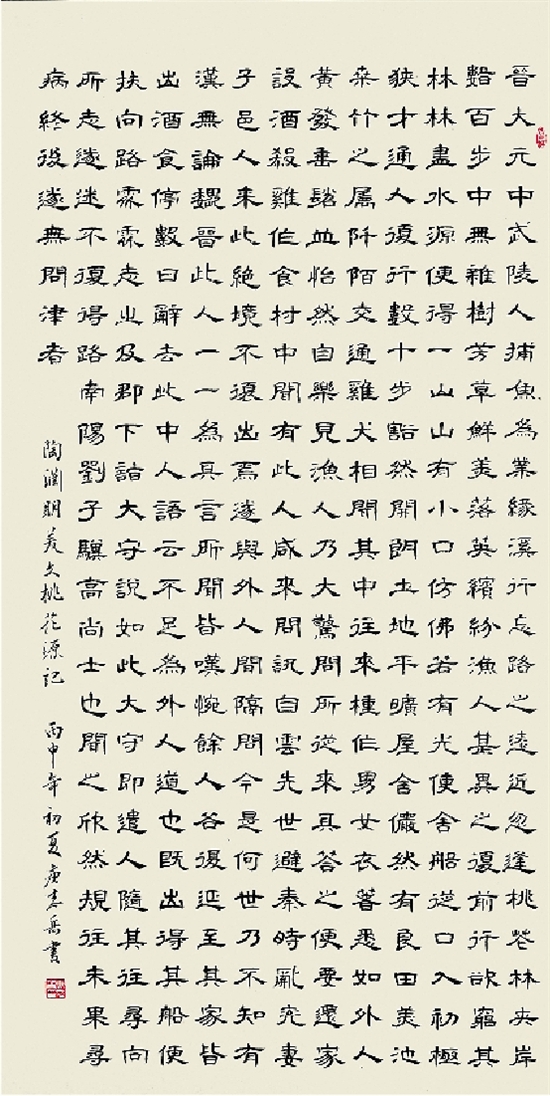 晉大元中武陵人捕魚為業緣溪行忘路之遠近忽逢桃花林夾岸
數百步中無雜樹芳草鮮美落英繽紛漁人甚異之復前行欲窮其
林林盡水源便得一山山有小口仿佛若有光便舍船從口入初極
狹才通人復行數十步豁然開朗土地平曠屋舍儼然有良田美池
桑竹之屬阡陌交通雞犬相聞其中往來種作男女衣著悉如外人
黃發垂髫並怡然自樂見漁人乃大驚問所從來具答之便要還家
設酒殺雞作食村中聞有此人咸來問訊自雲先世避秦時亂率妻
子邑人來此絕境不復出焉遂與外人間隔問今是何世乃不知有
漢無論魏晉此人一一為具言所聞皆嘆惋餘人各復延至其家皆
出酒食停數日辭去此中人語云不足為外人道也既出得其船便
扶向路處處志之及郡下詣大守說如此大守即遣人隨其往尋向
所志遂迷不復得路南陽劉子驥高尚士也聞之欣然規往未果尋
病終後遂無問津者
陶淵明美文桃花源記 丙申年初夏 書